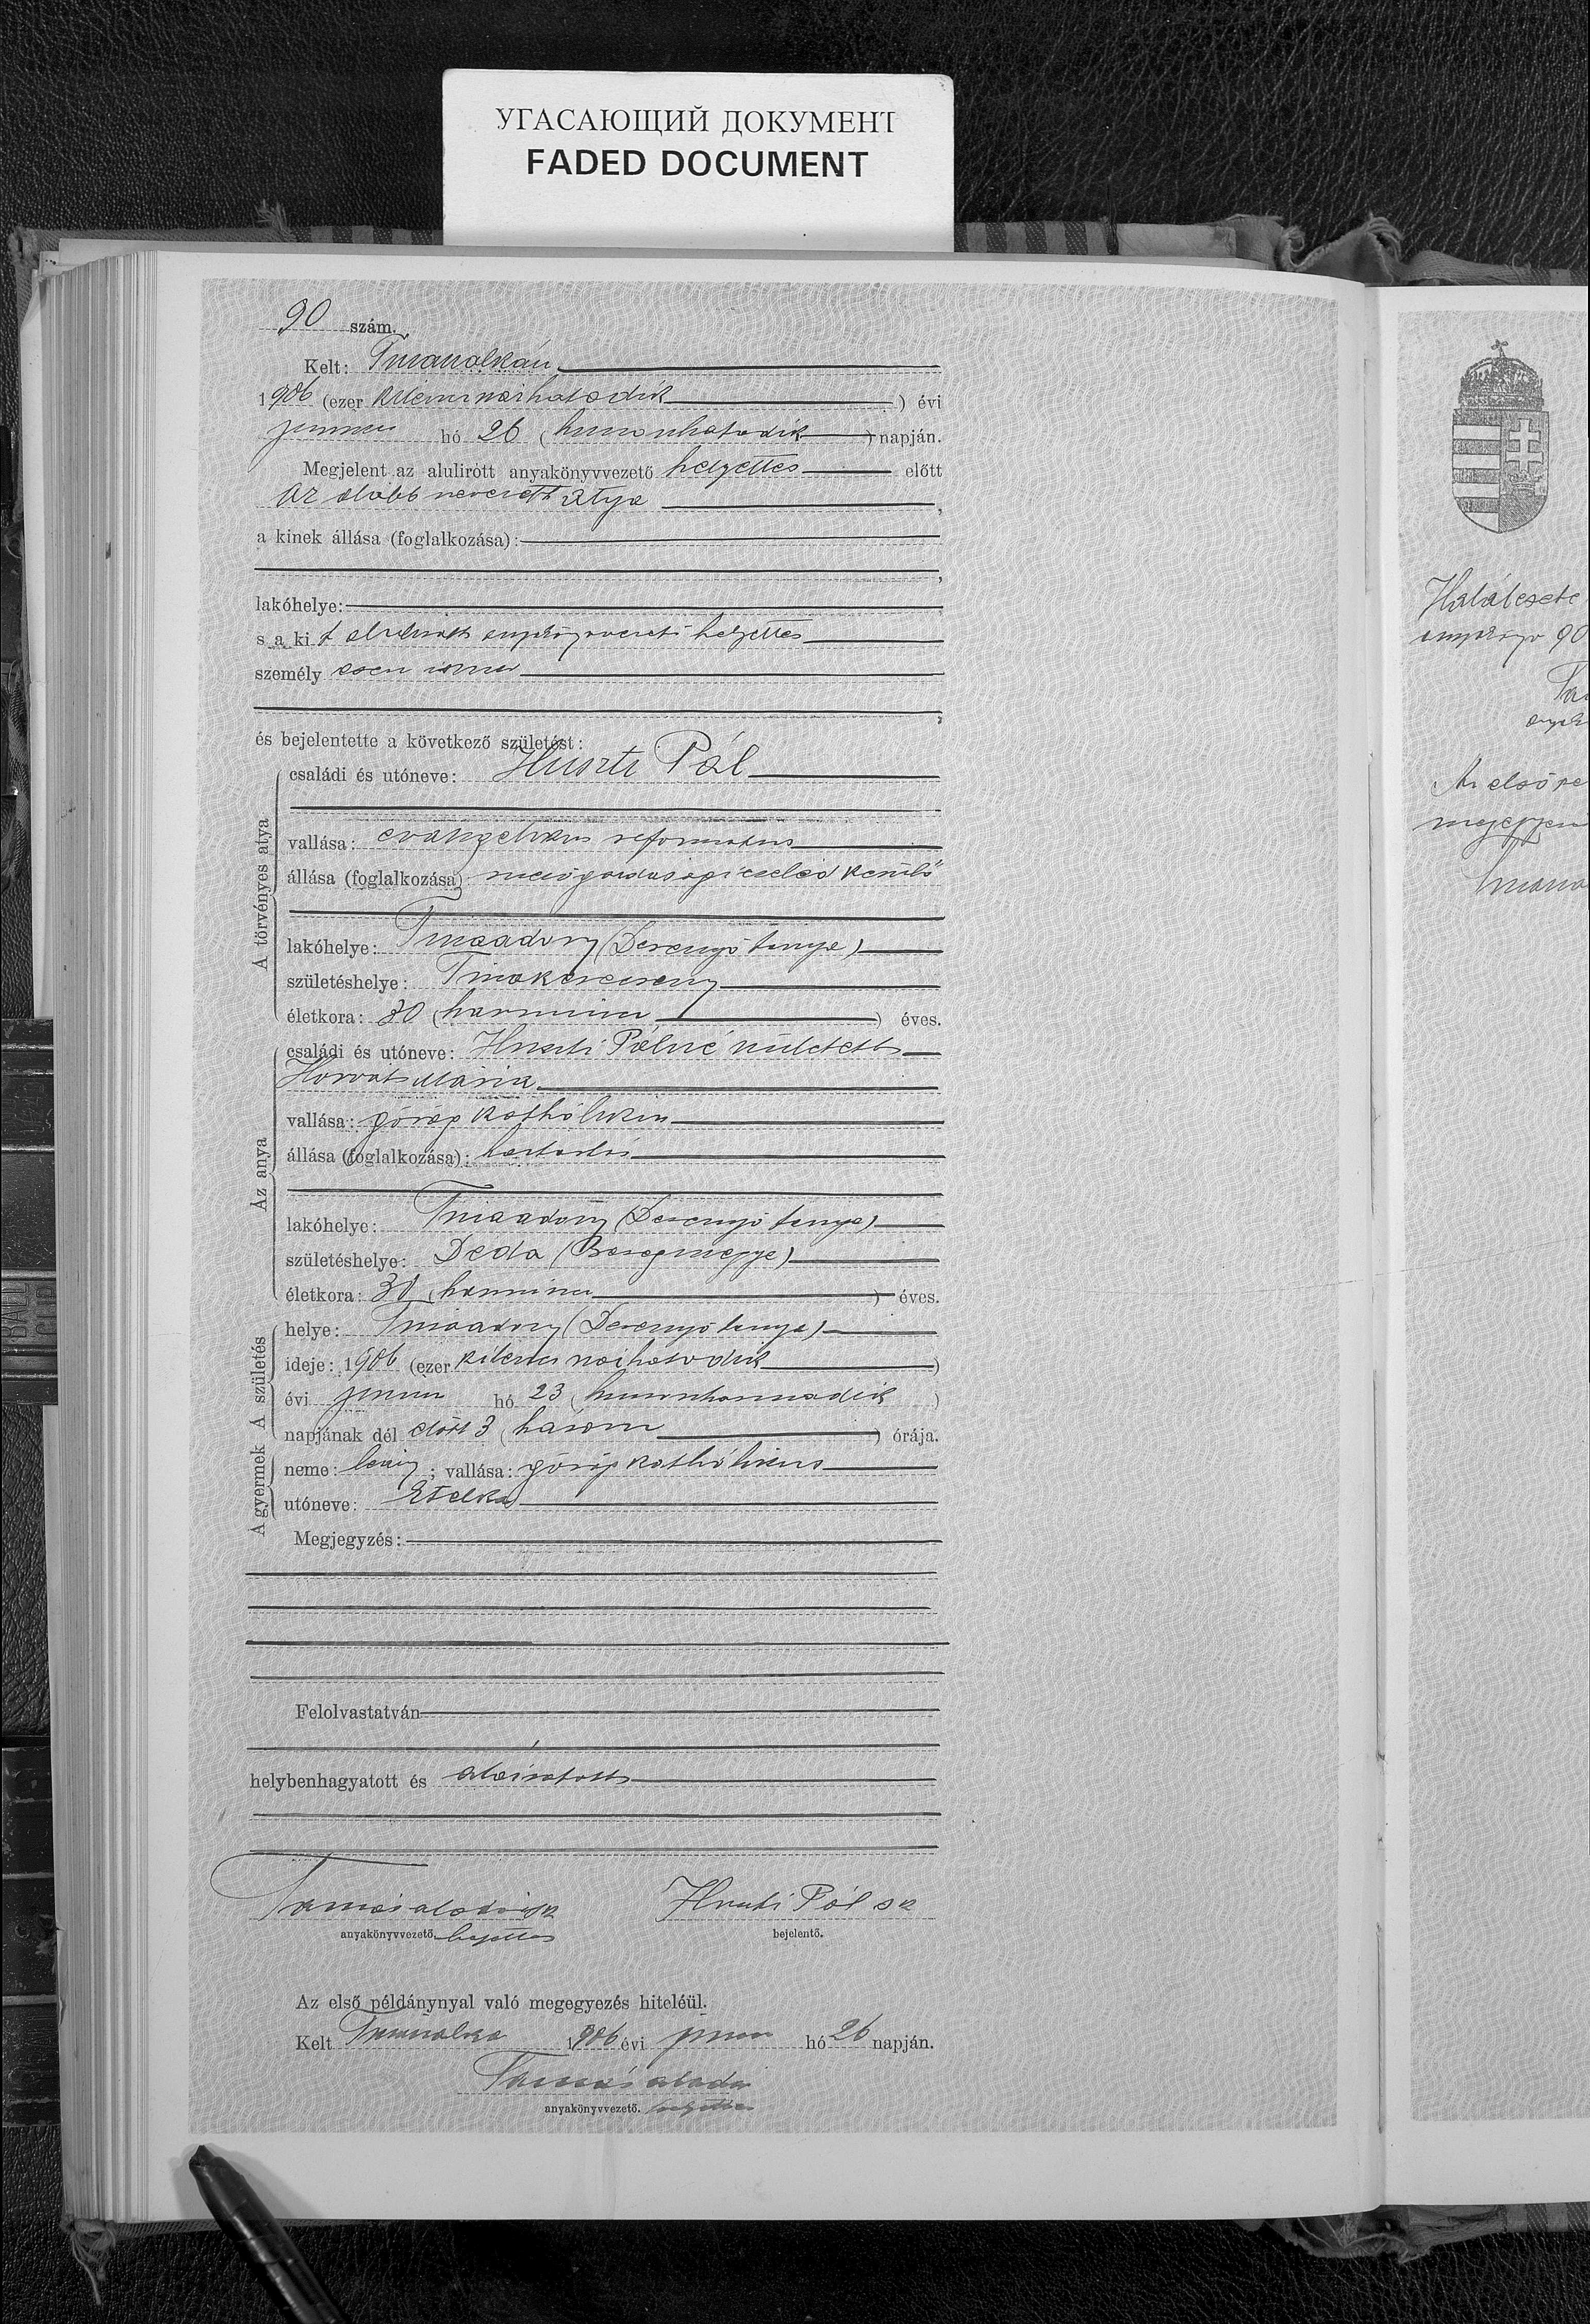 УГАСАЮЩИЙ ДОКУМЕНТ
FADED DOCUMENT
90 szám.
Kelt: Tiszasalkán
1906 (ezer kilenczszázhatodik) évi
junius hó 26 (huszonhatodik) napján.
Megjelent az alulirott anyakönyvvezető helyettes előtt
az alább nevezett atya,
a kinek állása (foglalkozása):
lakóhelye:
s a kit alulirott anyakönyvvezető helyettes
személyesen ismer
és bejelentette a következő születést:
A törvényes atya
családi és utóneve: Huszti Pál
vallása: evangelikus reformatus
állása (foglalkozása): mezőgazdasági cseléd kerülő
lakóhelye: Tiszaadony (Derengő tanya)
születéshelye: Tiszakerecseny
életkora: 30 (harmincz) éves.
Az anya
családi és utóneve: Huszti Pálné született
Horvát Mária
vallása: görög katholikus
állása (foglalkozása): háztartás
lakóhelye: Tiszaadony (Derengő tanya)
születéshelye: Deda (Beregmegye)
életkora: 30 (harmincz) éves.
A születés
helye: Tiszaadony (Derengő tanya)
ideje: 1906 (ezer kilenczszázhatodik)
évi junius hó 23 (huszonharmadik)
napjának dél előtt 3 (három) órája.
A gyermek
neme: leány; vallása: görög katholikus
utóneve: Etelka
Megjegyzés:
Felolvastatván
helybenhagyatott és aláiratott
Huszti Pál sk
anyakönyvvezető. helyettes
bejelentő.
Az első példánynyal való megegyezés hiteléül.
Kelt 1906 évi junius hó 26 napján.
anyakönyvvezető. helyettes
Halálesete
90
Az első pé
megegyez